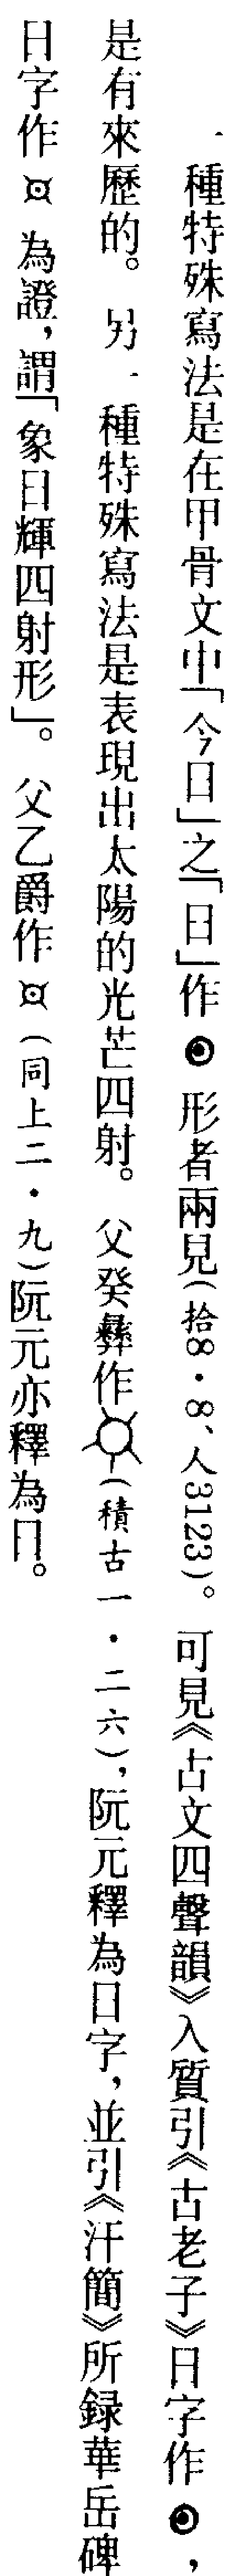 一種特殊寫法是在甲骨文中「今日」之「日」作 形者兩見(拾8·8、人3123)。可見《古文四聲韻》入質引《古老子》日字作 ,
是有來歷的。另一種特殊寫法是表現出太陽的光芒四射。父癸彝作 (積古一·二六),阮元釋為日字,並引《汗簡》所録華岳碑
日字作 為證,謂「象日輝四射形」。父乙爵作 (同上二·九)阮元亦釋為日。